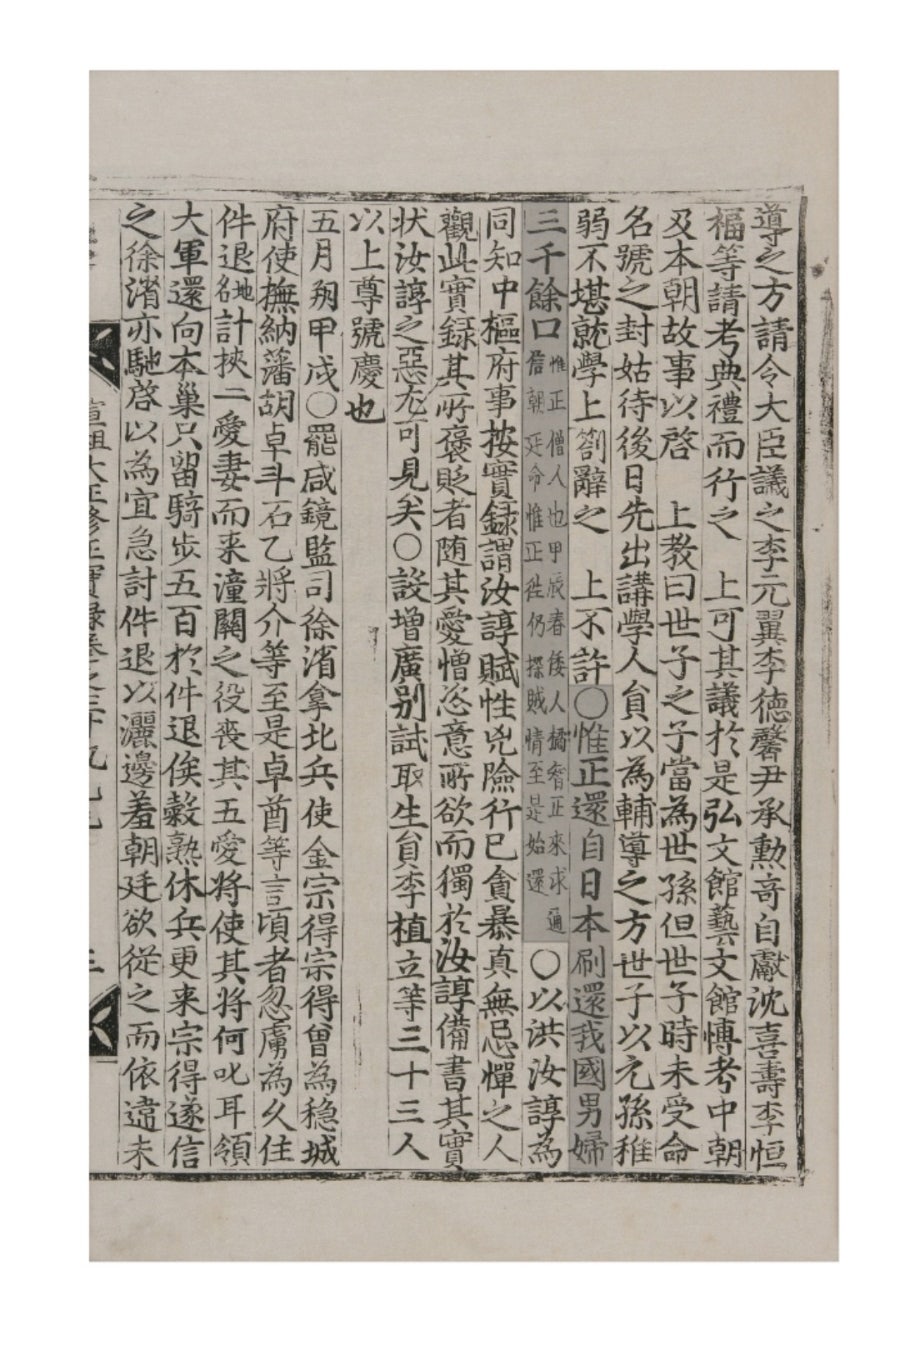 導之方請令大臣議之李元翼李德馨尹承勳奇自獻沈喜壽李恒
福等請考典禮而行之 上可其議於是弘文館藝文館博考中朝
及本朝故事以啓 上教曰世子之子當為世孫但世子時未受命
名號之封姑待後日先出講學人貟以為輔導之方世子以元孫稚
弱不堪就學上劄辭之 上不許○惟正還自日本刷還我國男婦
三千餘口惟正僧人也甲辰春倭人橘智正來求通
信朝廷令惟正徃仍探賊情至是始還○以洪汝諄為
同知中樞府事按實錄謂汝諄賦性兇險行己貪暴真無忌憚之人
觀此實録其所褒貶者随其愛憎恣意所欲而獨於汝諄備書其實
狀汝諄之惡尤可見矣○設增廣别試取生貟李植立等三十三人
以上尊號慶也
五月朔甲戌○罷咸鏡監司徐渻拿北兵使金宗得宗得曾為穏城
府使撫納藩胡卓斗石乙將介等至是卓酋等言頃者忽虜為久住
件退地名計挾二愛妻而来潼關之役喪其五愛將使其將何叱耳領
大軍還向本巢只留騎步五百於件退俟穀熟休兵更来宗得遂信
之徐渻亦馳啓以為宜急討件退以灑邊羞朝廷欲從之而依違未
宣祖大王修正實錄卷之三十九